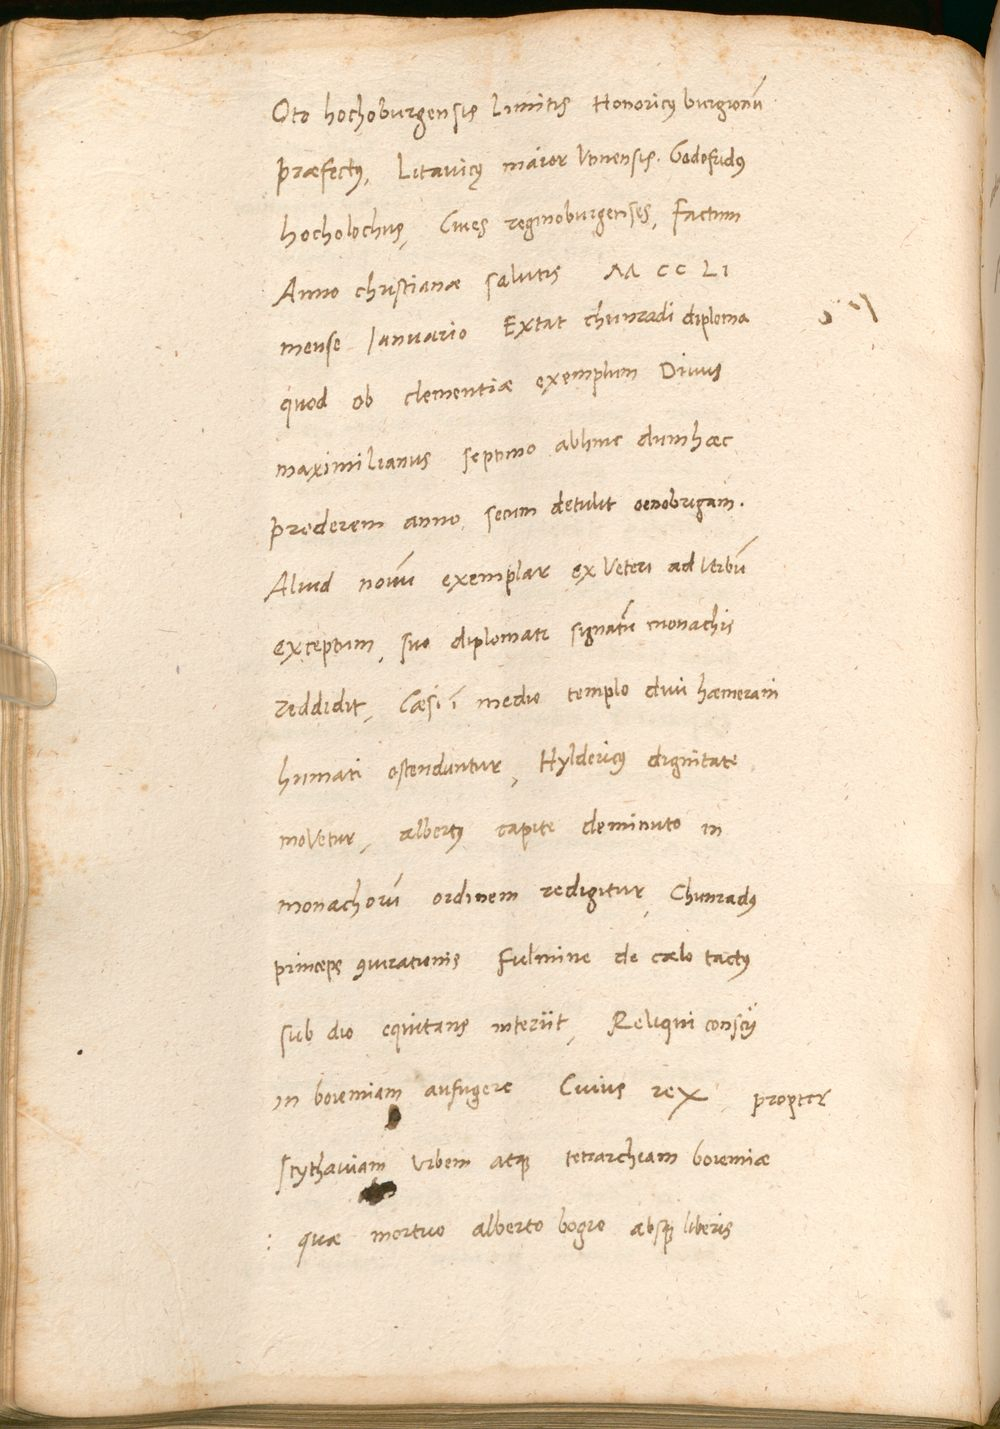 Oto hochoburgensis Limitis Honoricꝰ burgionū
præfectꝰ, Litauicꝰ maior Vnnensis. Godefridꝰ
hocholochus, Ciues reginoburgenses, Factum
Anno christianæ salutis M CC LI
mense Ianuario Extat chunradi diploma
quod ob clementiæ exemplum Diuus
maximilianus septimo abhinc dum hæc
proderem anno, secum detulit oenobrigam.
Aliud nouū exemplar ex Veteri ad Verbū
exceptum, suo diplomate signatū monachis
reddidit, Cæsi ī medio templo diui hæmerami
humati ostenduntur, Hyldericꝰ dignitate
moVetur, albertꝰ capite deminuto in
monachorū ordinem redigitur, Chunradꝰ
princeps ꝯiurationis Fulmine de cælo tactꝰ
sub dio equitans interiit, Reliqui conscij
in boiemiam aufugere Cuius rex propter
scythauiam Vrbem atqꝫ tetrarchiam boiemiæ
: quæ mortuo alberto bogio absqꝫ liberis